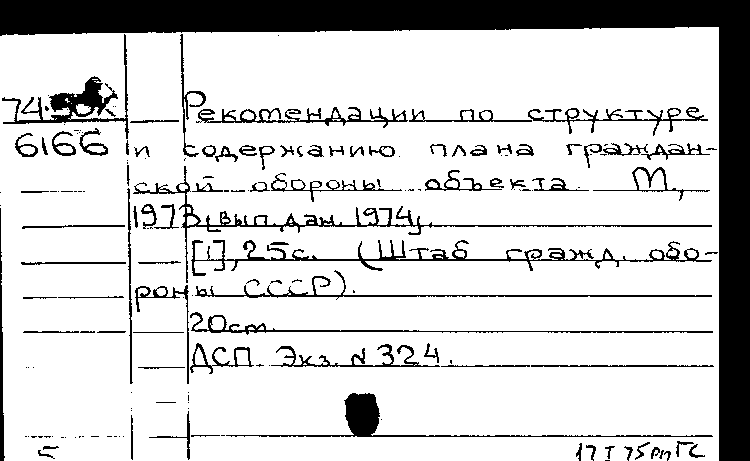 74-
6166
Рекомендации по структуре
и содержанию плана граждан-
ской обороны объекта М.,
1973 [вып. дан. 1974].
[1], 25 с. (Штаб гражд. обо-
роны СССР).
20 см.
ДСП Экз. № 324.
5
17 I 75